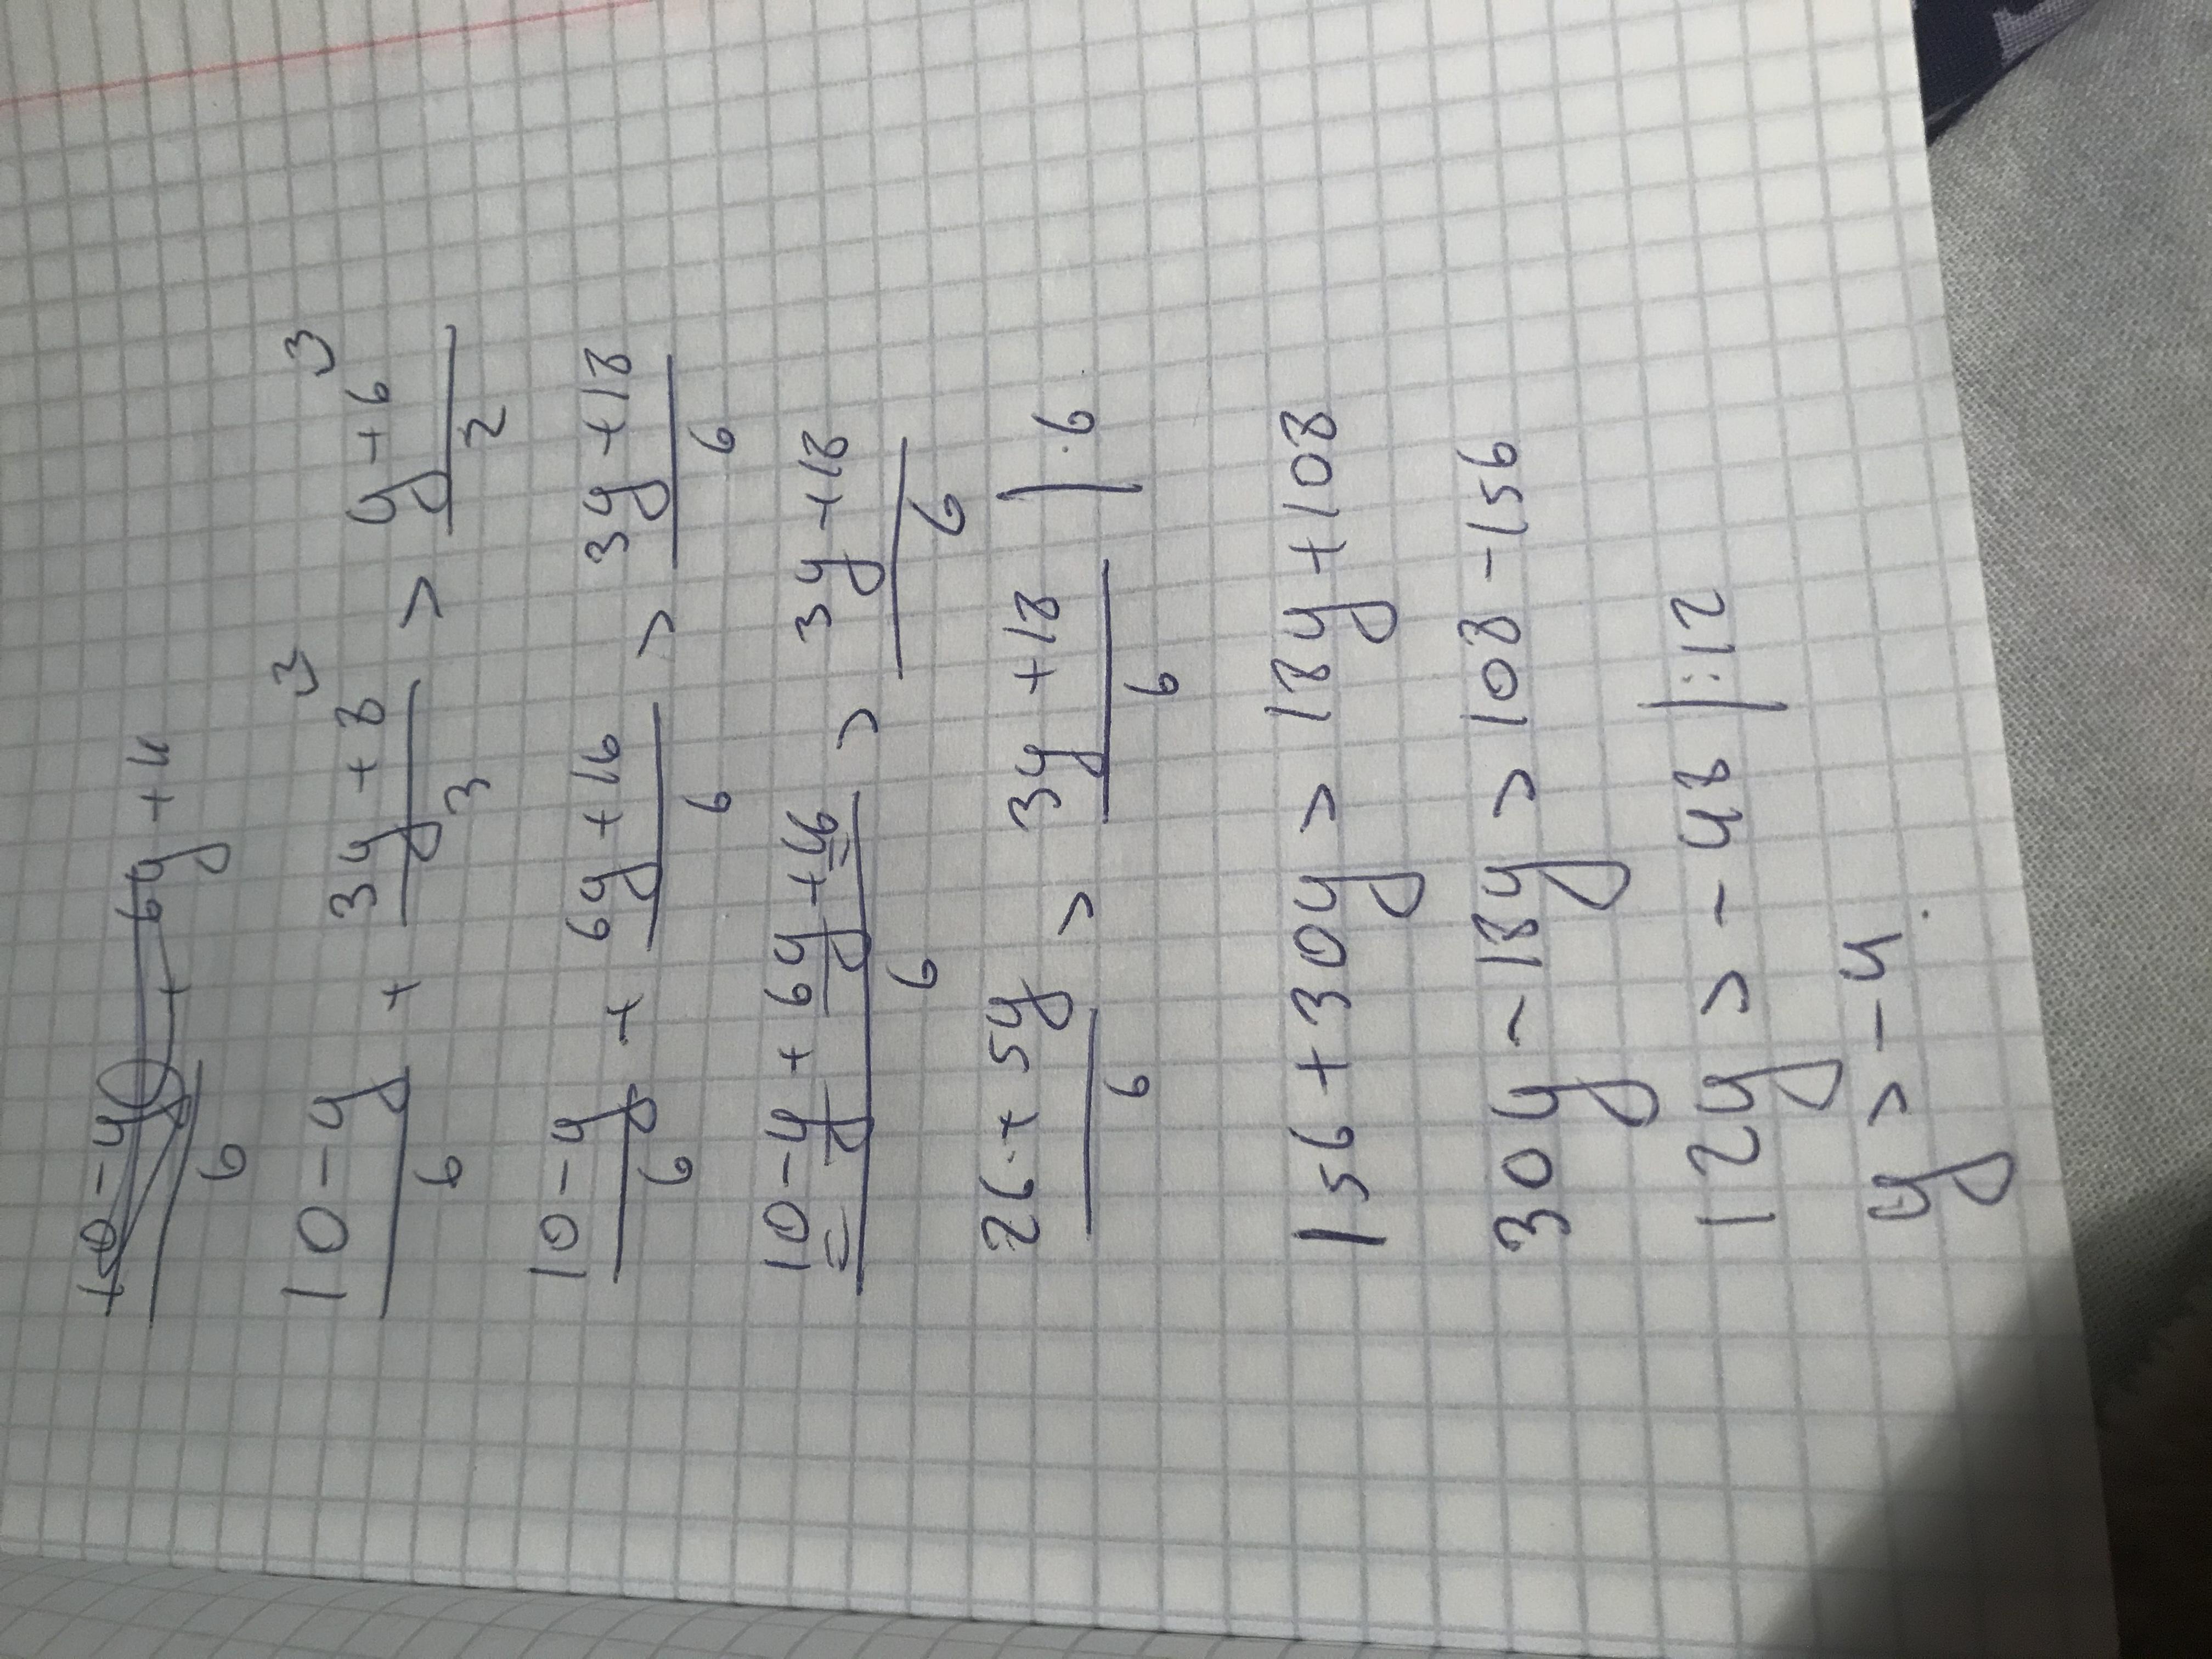 10-y/6 + 6y+11
10-y/6 + 3y+8/3 ³ > y+6/2 ³
10-y/6 + 6y+16/6 > 3y+18/6
10-y+6y+16/6 > 3y+18/6
26+5y/6 > 3y+18/6 |·6
156+30y > 18y+108
30y-18y > 108-156
12y > -48 |:12
y > -4.